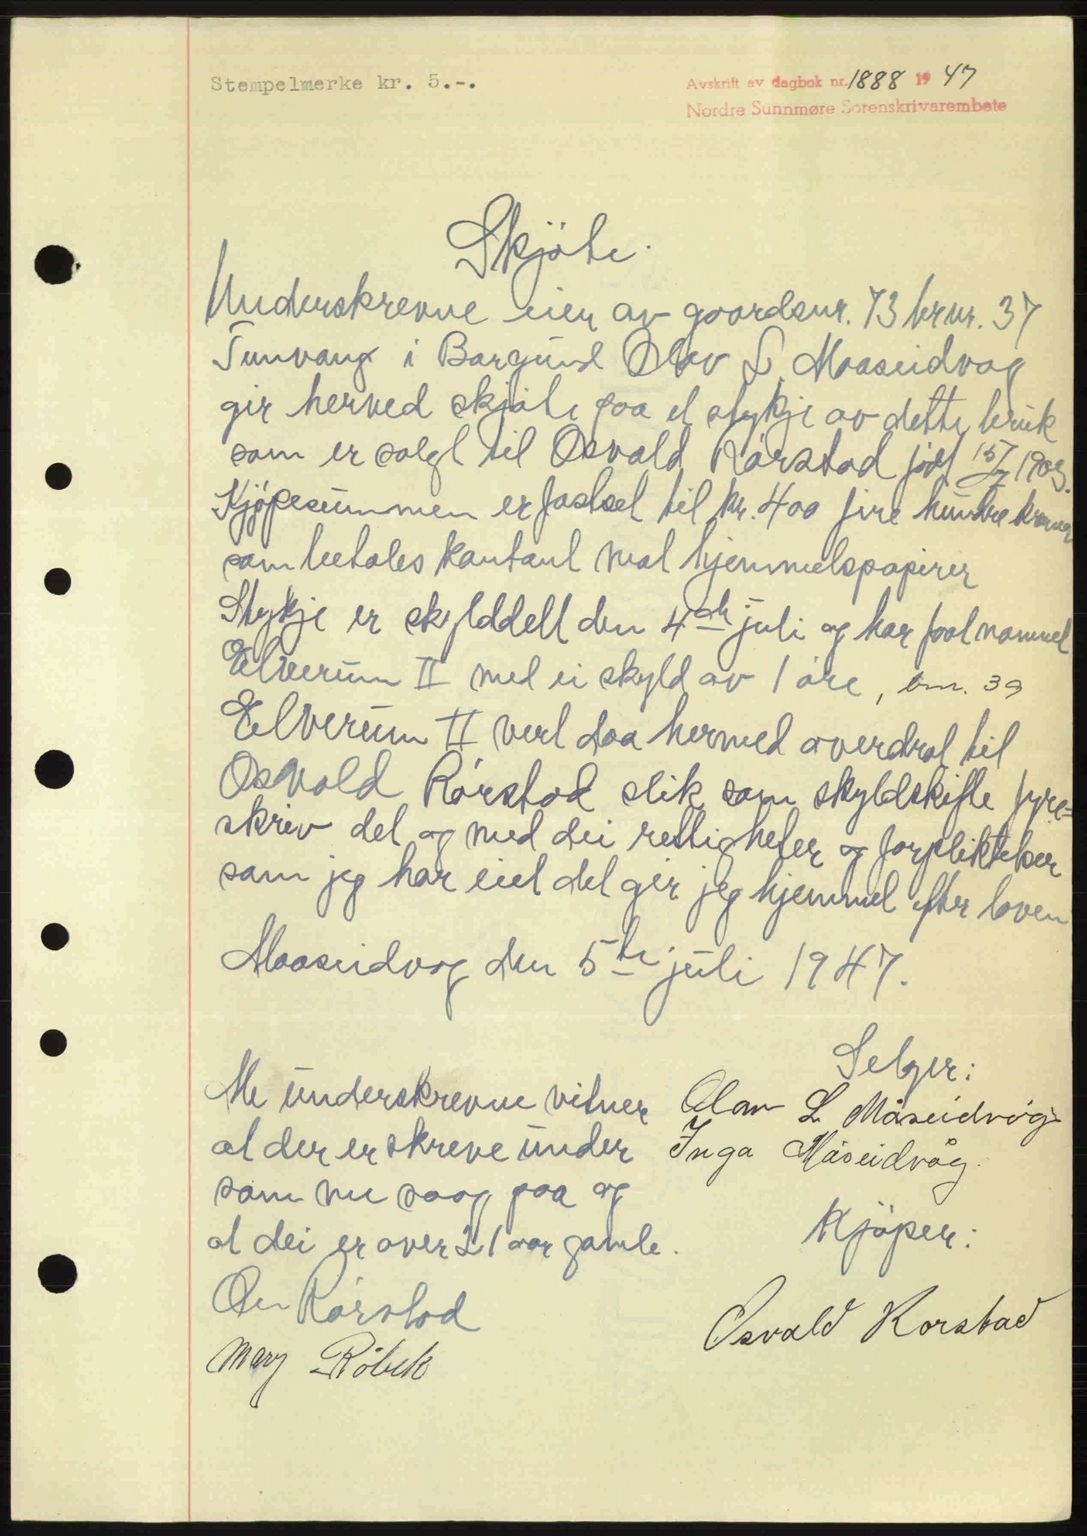 Stempelmerke kr. 5.-.
Avskrift av dagbok nr. 1888 1947
Nordre Sunnmøre Sorenskrivarembete
Skjöte.
Underskrevne eier av gaardsnr. 73 brnr. 37
Tunvang i Borgund Olav L. Maaseidvag
gir herved skjöte paa et stykje av dette bruk
som er solgt til Osvald Rörstad född 15/7 1903.
Kjöpesummen er fastset til kr. 400 fire hundre kroner
som betales kontant mot hjemmelspapirer
Stykje er skylddelt den 4de juli og har faat nammet
Elverum II med ei skyld av 1 öre, bnr. 39
Elverum II vert daa hermed averdrat til
Osvald Rörstad slik som skyldskifte fyre=
skriv det og med dei rettigheter og forpliktelser
som jeg har eiet det gir jeg hjemmel efter loven
Maaseidvag den 5te juli 1947.
Selger:
Olav L Måseidvåg
Inga Måseidvåg.
Kjöper:
Osvald Rorstad
Me underskrevne vitner
at der er skreve under
som me saag paa og
at dei er over 21 aar gamle.
Rörstad
Mary Röbek